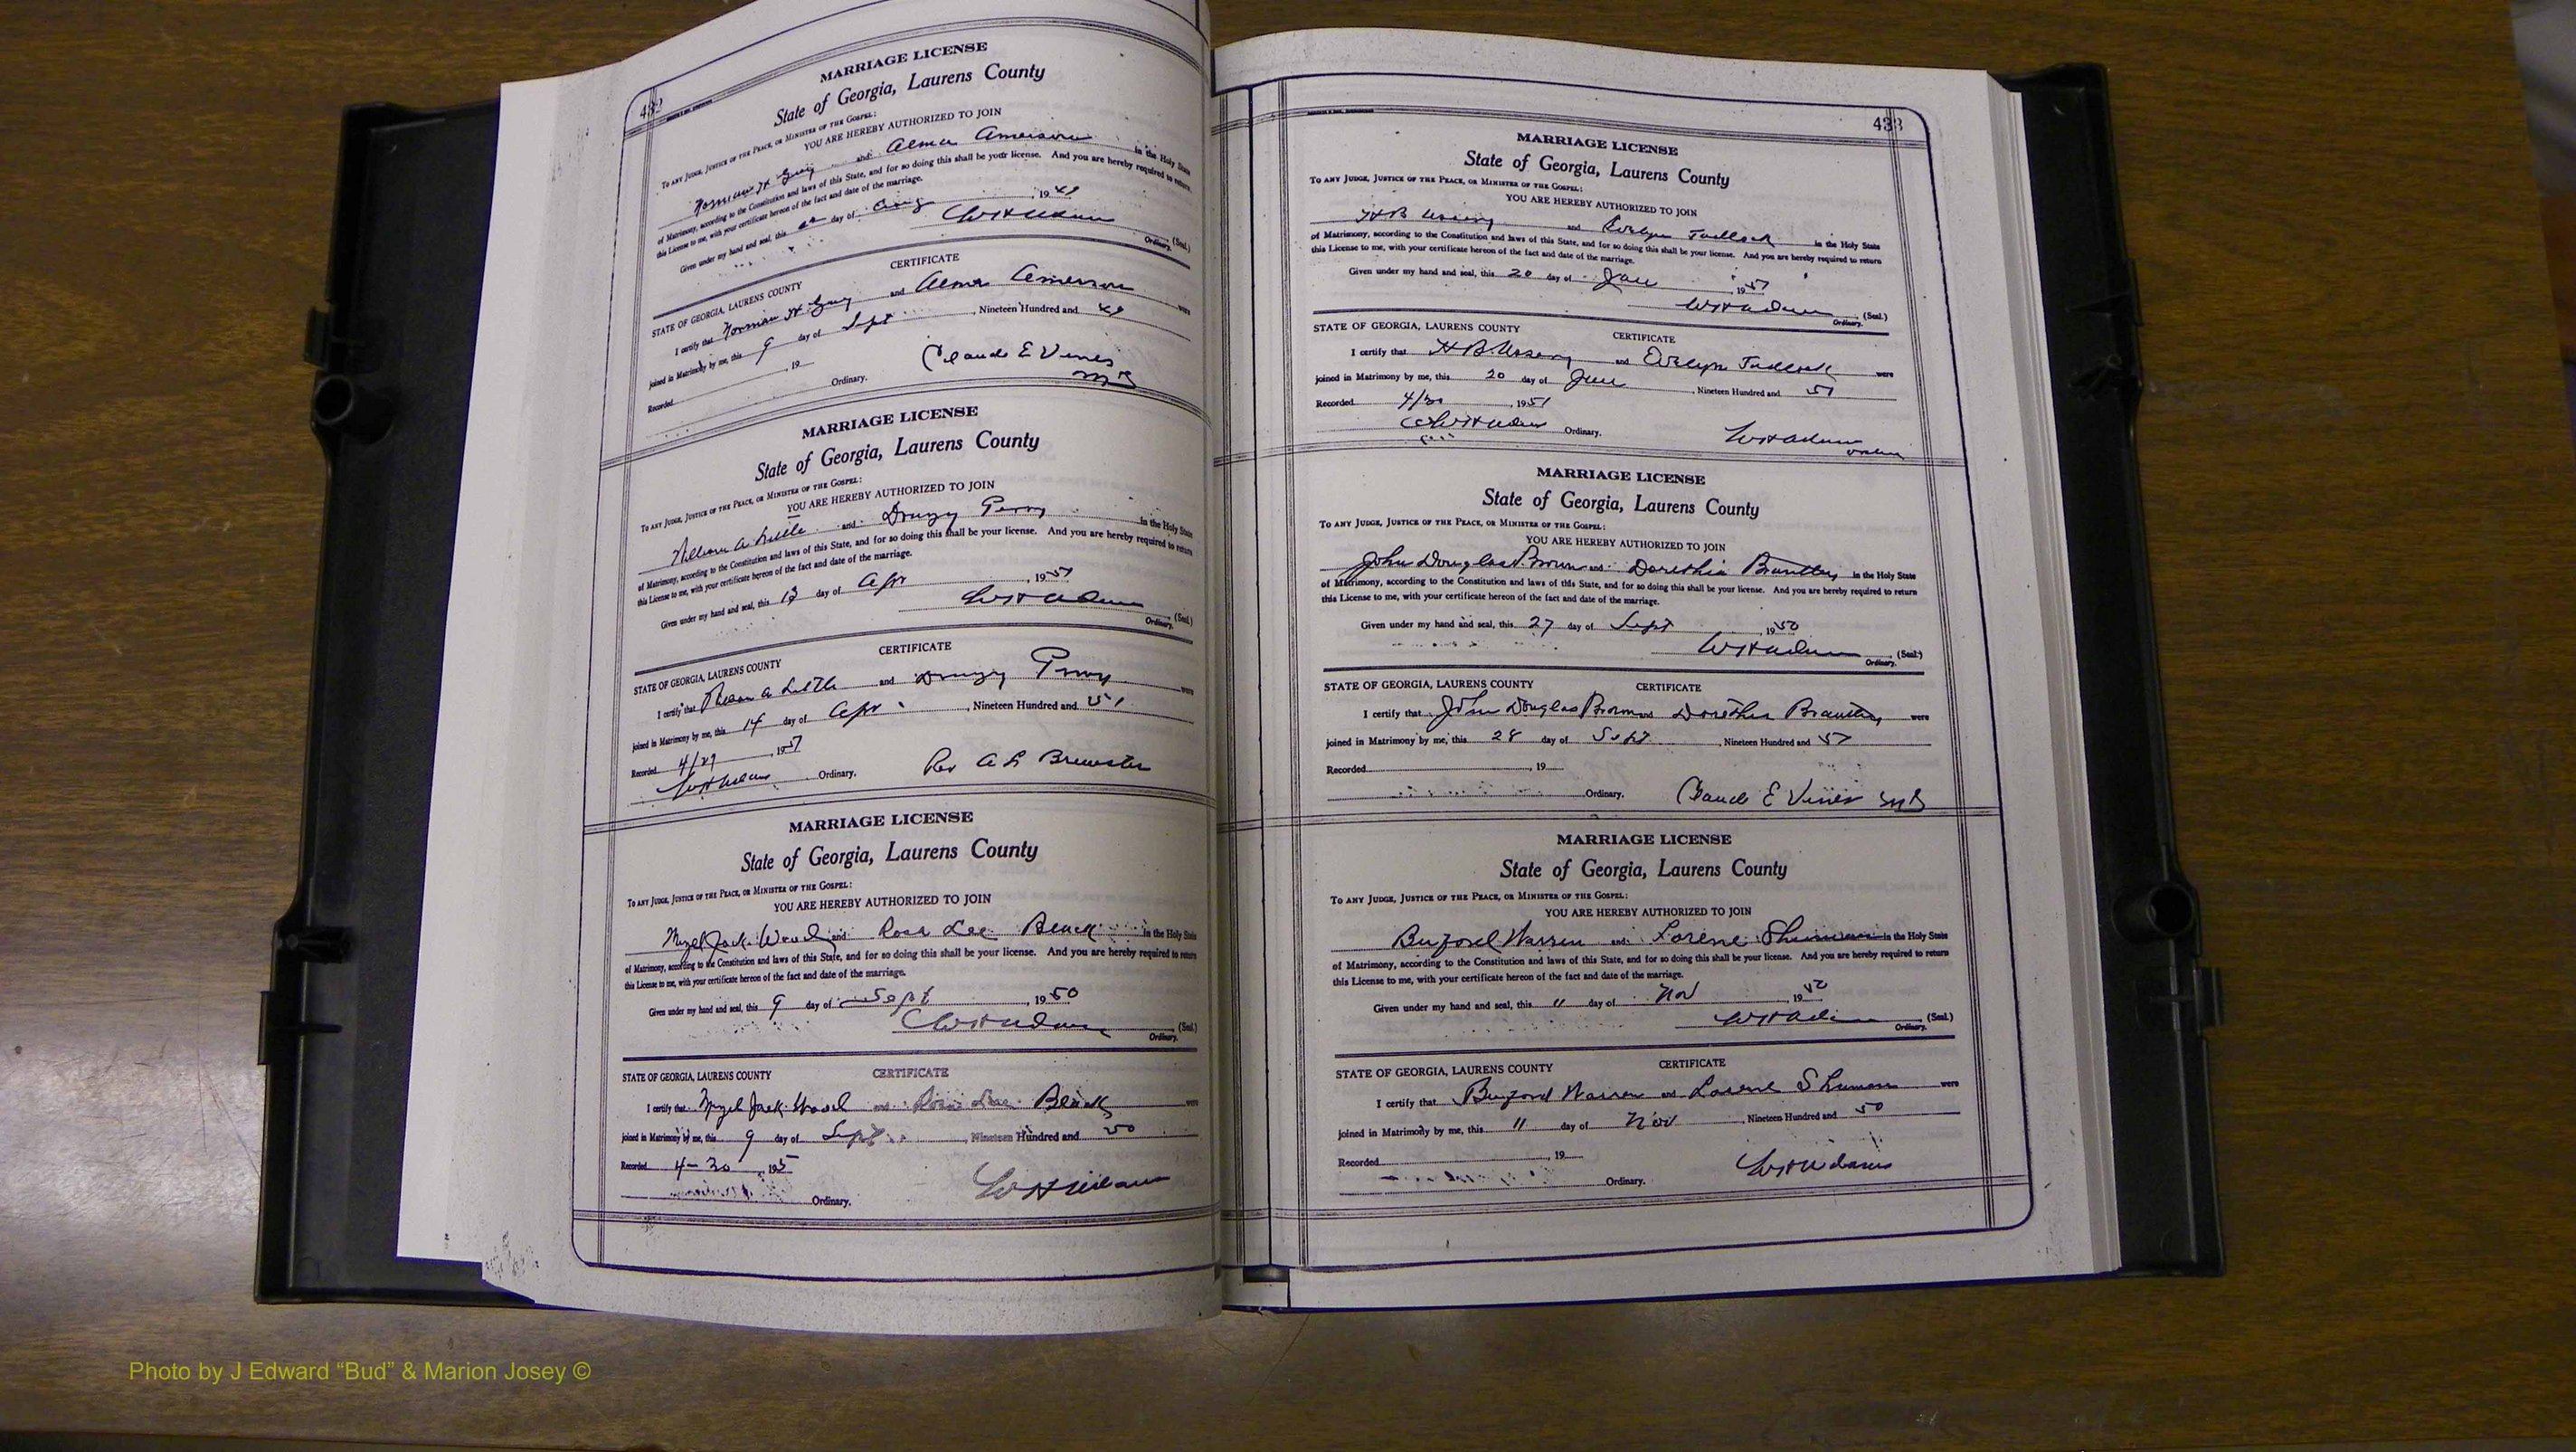 432
MARRIAGE LICENSE
State of Georgia, Laurens County
To any Judge, Justice of the Peace, or Minister of the Gospel:
YOU ARE HEREBY AUTHORIZED TO JOIN
Norman H Guy and Alma Amerson in the Holy State
of Matrimony, according to the Constitution and laws of this State, and for so doing this shall be your license. And you are hereby required to return
this License to me, with your certificate hereon of the fact and date of the marriage.
Given under my hand and seal, this day of Aug, 1949
W H Adams (Seal.)
Ordinary.
CERTIFICATE
STATE OF GEORGIA, LAURENS COUNTY
I certify that Norman H Guy and Alma Amerson were
joined in Matrimony by me, this 9 day of Sept, Nineteen Hundred and 49
Recorded , 19
Claude E Vines
Ordinary. MG
MARRIAGE LICENSE
State of Georgia, Laurens County
To any Judge, Justice of the Peace, or Minister of the Gospel:
YOU ARE HEREBY AUTHORIZED TO JOIN
William A Little and Perry in the Holy State
of Matrimony, according to the Constitution and laws of this State, and for so doing this shall be your license. And you are hereby required to return
this License to me, with your certificate hereon of the fact and date of the marriage.
Given under my hand and seal, this 13 day of Apr, 1951
W H Adams (Seal.)
Ordinary.
CERTIFICATE
STATE OF GEORGIA, LAURENS COUNTY
I certify that A Little and Perry were
joined in Matrimony by me, this 14 day of Apr, Nineteen Hundred and 51
Recorded 4/29, 1951
W H Adams Ordinary. Rev A L Brewster
MARRIAGE LICENSE
State of Georgia, Laurens County
To any Judge, Justice of the Peace, or Minister of the Gospel:
YOU ARE HEREBY AUTHORIZED TO JOIN
Jack Wood and Rosa Lee Black in the Holy State
of Matrimony, according to the Constitution and laws of this State, and for so doing this shall be your license. And you are hereby required to return
this License to me, with your certificate hereon of the fact and date of the marriage.
Given under my hand and seal, this 9 day of Sept, 1950
W H Adams (Seal.)
Ordinary.
STATE OF GEORGIA, LAURENS COUNTY CERTIFICATE
I certify that Jack Wood and Rosa Lee Black were
joined in Matrimony by me, this 9 day of Sept, Nineteen Hundred and 50
Recorded 4-30, 195
W H Adams
Ordinary.
433
MARRIAGE LICENSE
State of Georgia, Laurens County
To any Judge, Justice of the Peace, or Minister of the Gospel:
YOU ARE HEREBY AUTHORIZED TO JOIN
H B Ussery and Evelyn Tadlock in the Holy State
of Matrimony, according to the Constitution and laws of this State, and for so doing this shall be your license. And you are hereby required to return
this License to me, with your certificate hereon of the fact and date of the marriage.
Given under my hand and seal, this 20 day of Jan, 1951
W H Adams (Seal.)
Ordinary.
STATE OF GEORGIA, LAURENS COUNTY CERTIFICATE
I certify that H B. Ussery and Evelyn Tadlock were
joined in Matrimony by me, this 20 day of Jan, Nineteen Hundred and 51
Recorded 4/30, 1951
W H Adams Ordinary. W H Adams
MARRIAGE LICENSE
State of Georgia, Laurens County
To any Judge, Justice of the Peace, or Minister of the Gospel:
YOU ARE HEREBY AUTHORIZED TO JOIN
John Douglas Brown and Dorethia Brantley in the Holy State
of Matrimony, according to the Constitution and laws of this State, and for so doing this shall be your license. And you are hereby required to return
this License to me, with your certificate hereon of the fact and date of the marriage.
Given under my hand and seal, this 27 day of Sept, 1950
W H Adams (Seal.)
Ordinary.
STATE OF GEORGIA, LAURENS COUNTY CERTIFICATE
I certify that John Douglas Brown and Dorethia Brantley were
joined in Matrimony by me, this 28 day of Sept, Nineteen Hundred and 50
Recorded , 19
Ordinary. Claude E Vines MG
MARRIAGE LICENSE
State of Georgia, Laurens County
To any Judge, Justice of the Peace, or Minister of the Gospel:
YOU ARE HEREBY AUTHORIZED TO JOIN
Buford Warren and Lorene Shuman in the Holy State
of Matrimony, according to the Constitution and laws of this State, and for so doing this shall be your license. And you are hereby required to return
this License to me, with your certificate hereon of the fact and date of the marriage.
Given under my hand and seal, this 11 day of Nov, 1950
W H Adams (Seal.)
Ordinary.
STATE OF GEORGIA, LAURENS COUNTY CERTIFICATE
I certify that Buford Warren and Lorene Shuman were
joined in Matrimony by me, this 11 day of Nov, Nineteen Hundred and 50
Recorded , 19
W H Adams
Ordinary.
Photo by J Edward “Bud” & Marion Josey ©